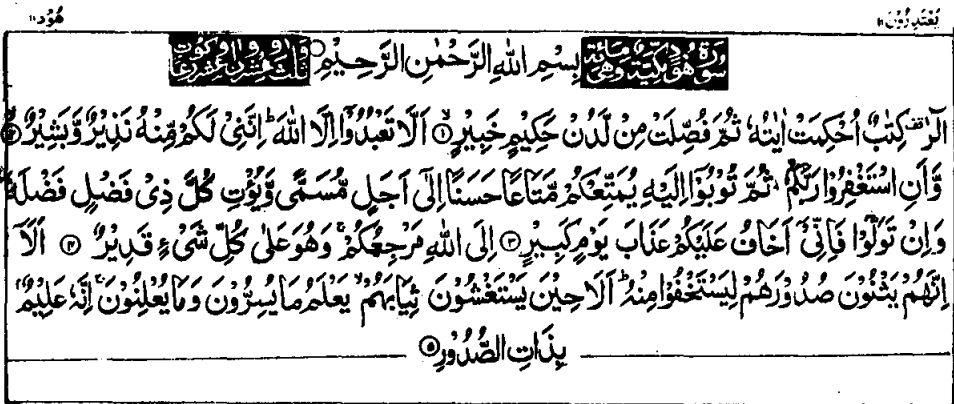 یعتذرون ۱۱ ھود ۱۱
سُوْرَةُ هُوْدٍ مَكِّیَّةٌ وَّهِیَ مِائَةٌ بِسْمِ اللهِ الرَّحْمٰنِ الرَّحِیْمِ وَّثَلٰثٌ وَّعِشْرُوْنَ
الٓرٰ ۫ كِتٰبٌ اُحْكِمَتْ اٰیٰتُهٗ ثُمَّ فُصِّلَتْ مِنْ لَّدُنْ حَكِیْمٍ خَبِیْرٍ ۙ﴿۱﴾ اَلَّا تَعْبُدُوْۤا اِلَّا اللهَ ؕ اِنَّنِیْ لَكُمْ مِّنْهُ نَذِیْرٌ وَّ بَشِیْرٌ ۙ﴿۲﴾
وَّ اَنِ اسْتَغْفِرُوْا رَبَّكُمْ ثُمَّ تُوْبُوْۤا اِلَیْهِ یُمَتِّعْكُمْ مَّتَاعًا حَسَنًا اِلٰۤی اَجَلٍ مُّسَمًّی وَّ یُؤْتِ كُلَّ ذِیْ فَضْلٍ فَضْلَهٗ ؕ
وَ اِنْ تَوَلَّوْا فَاِنِّیْۤ اَخَافُ عَلَیْكُمْ عَذَابَ یَوْمٍ كَبِیْرٍ ﴿۳﴾ اِلَی اللهِ مَرْجِعُكُمْ ۚ وَ هُوَ عَلٰی كُلِّ شَیْءٍ قَدِیْرٌ ﴿۴﴾ اَلَاۤ
اِنَّهُمْ یَثْنُوْنَ صُدُوْرَهُمْ لِیَسْتَخْفُوْا مِنْهُ ؕ اَلَا حِیْنَ یَسْتَغْشُوْنَ ثِیَابَهُمْ ۙ یَعْلَمُ مَا یُسِرُّوْنَ وَ مَا یُعْلِنُوْنَ ۚ اِنَّهٗ عَلِیْمٌۢ
بِذَاتِ الصُّدُوْرِ ﴿۵﴾